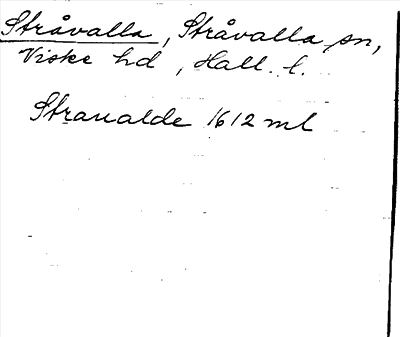 Stråvalla, Stråvalla sn,
Viske hd, Hall. l.
Stranalde 1612 ml